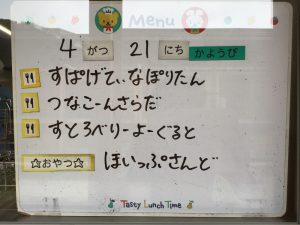 Menu
4 がつ 21 にち かようび
すぱげてぃなぽりたん
つなこーんさらだ
すとろべりーよーぐると
☆おやつ☆ ほいっぷさんど
Tasty Lunch Time